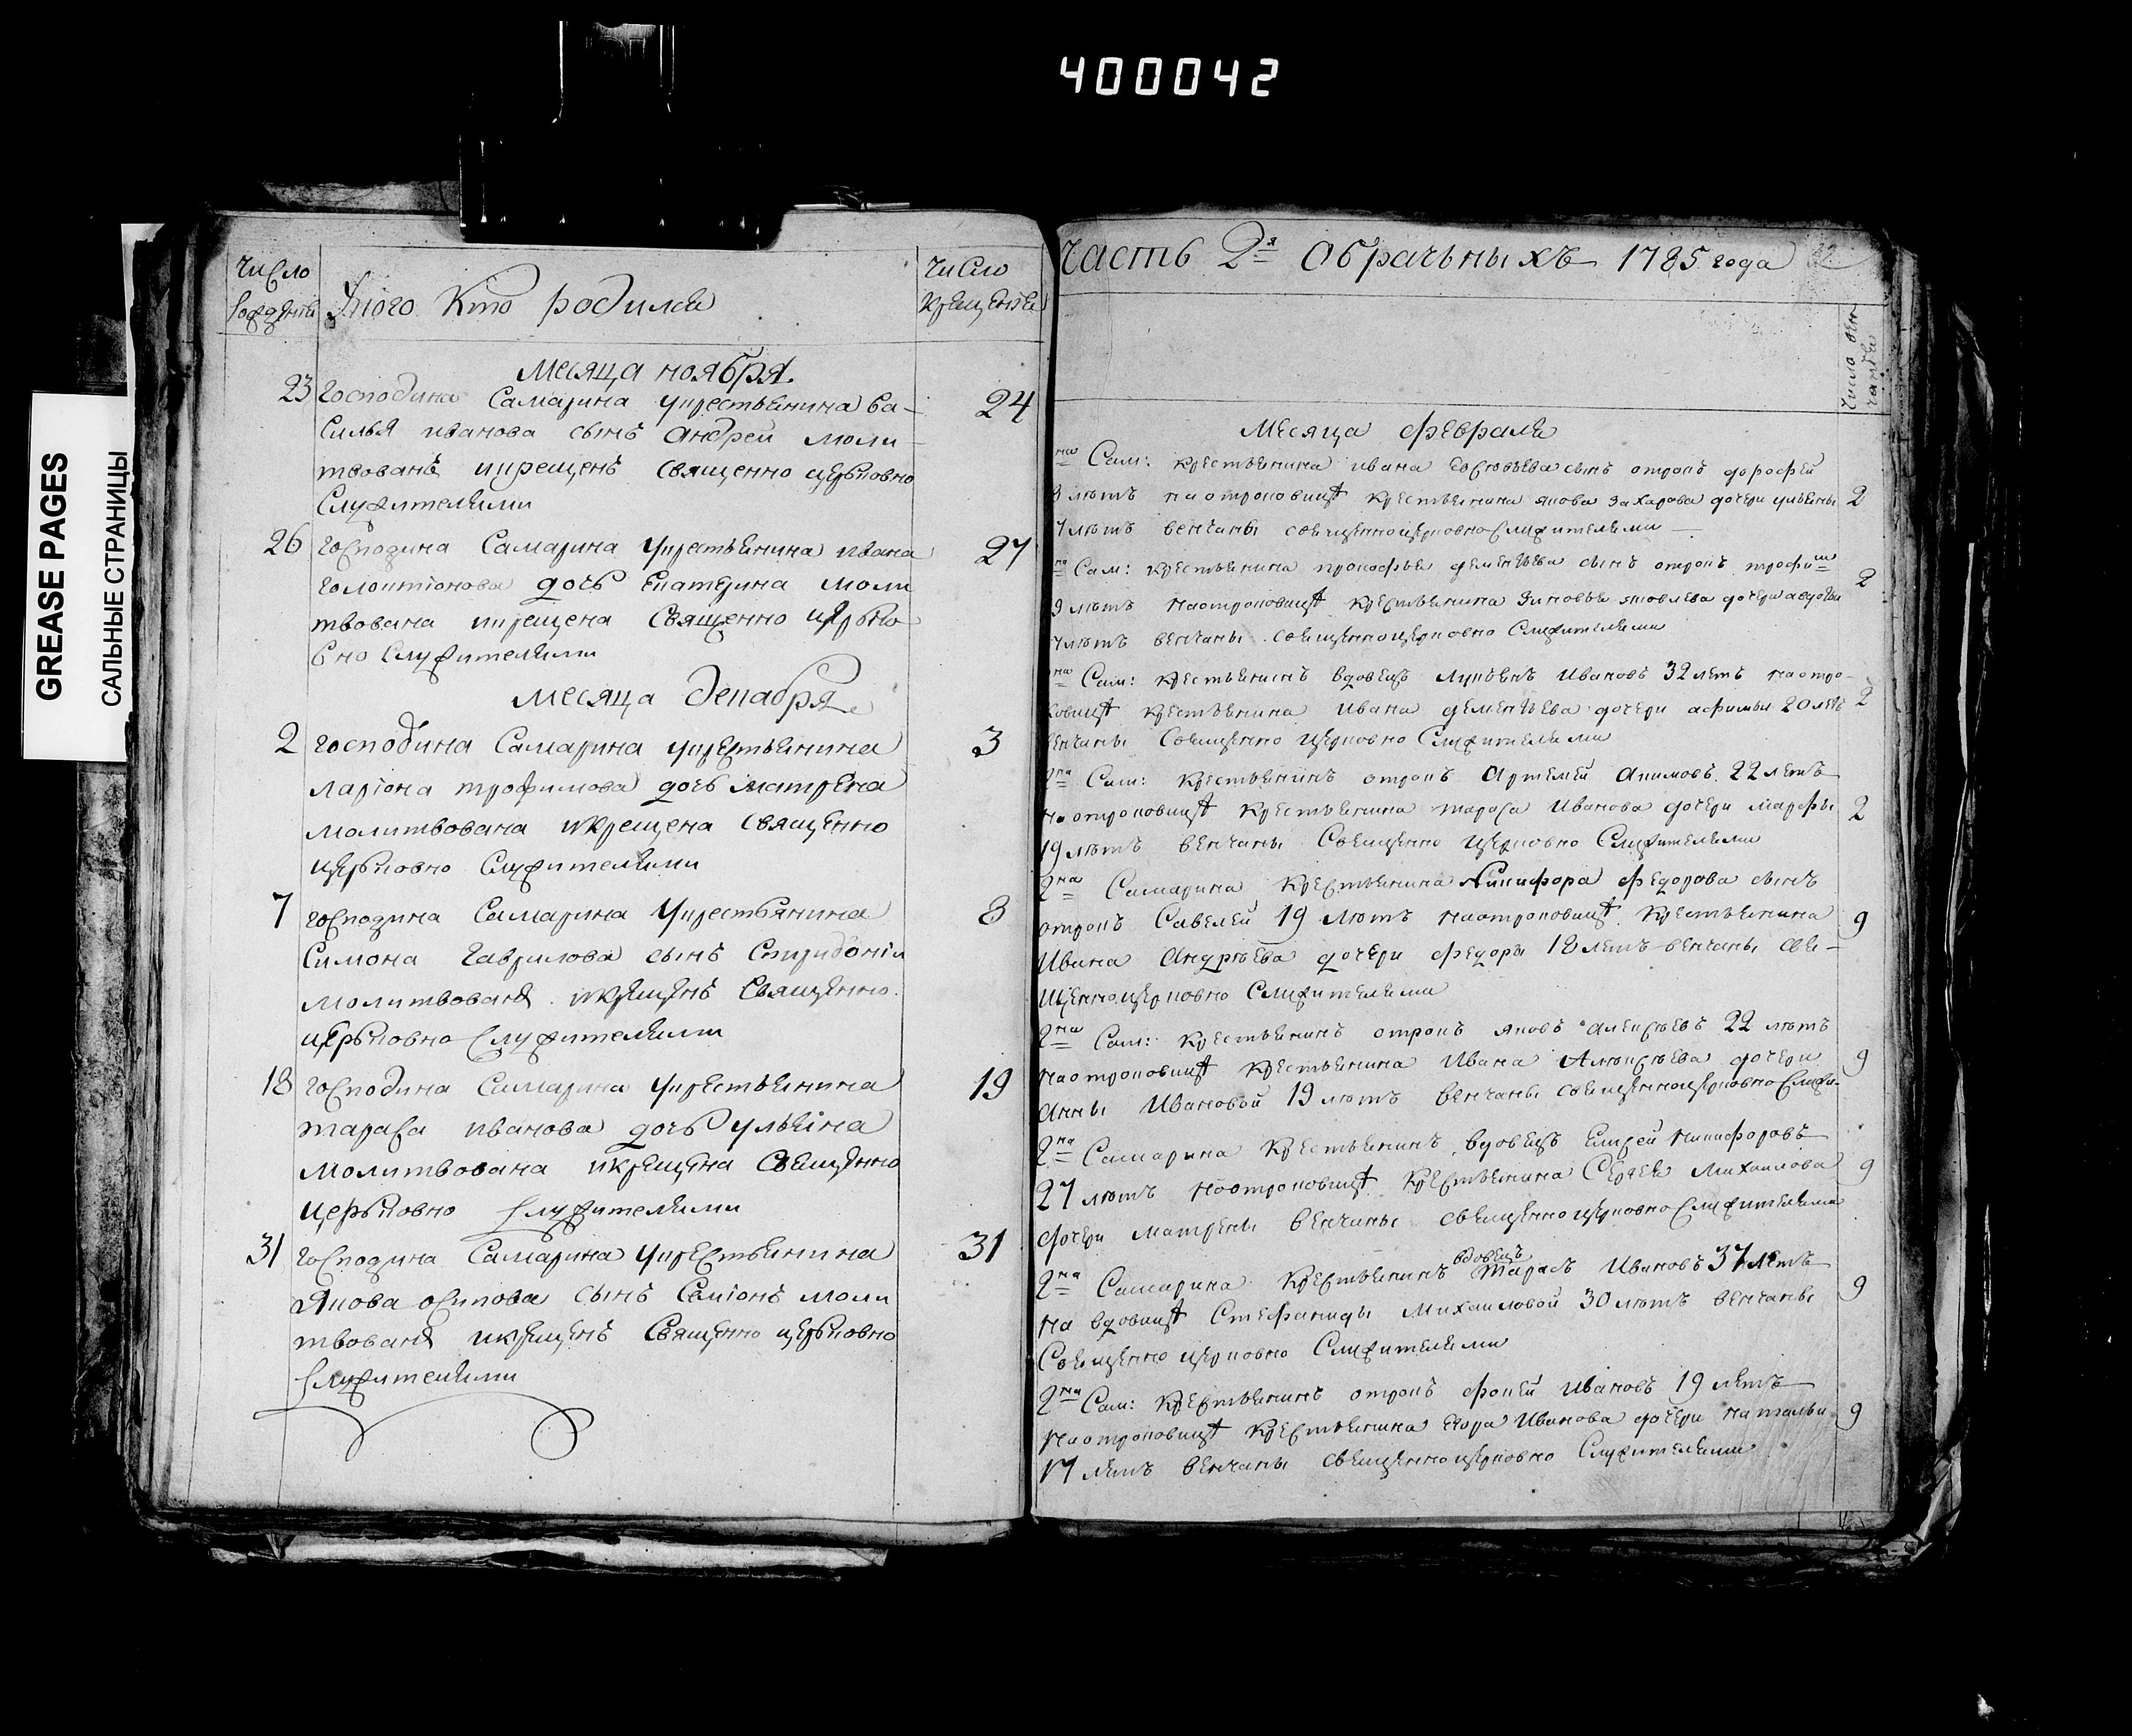 400042
GREASE PAGES
САЛЬНЫЕ СТРАНИЦЫ
число рожденiя
Укого Кто родился
число крещенiя
Месяца ноября
23 господина Самарина укрестьянина ва-
24
силья иванова сынъ андрей моли
твованъ икрещенъ священно церьковно
служителями
26 господина Самарина укрестьянина ивана
27
голоктiонова дочь екатерина моли
твована икрещена священно церько
вно служителями
месяца декабря
2 господина Самарина укрестьянина
3
ларiона трофимова дочь матрена
молитвована икрещена священно
церьковно служителями
7 господина Самарина укрестьянина
8
Симона гаврилова сынъ Спиридонiи
молитвованъ икрещенъ священно
церьковно служителями
18 господина Самарина укрестьянина
19
тараса иванова дочь ульяна
молитвована икрещена священно
церьковно служителями
31 господина Самарина укрестьянина
31
Якова осипова сынъ Самiонъ моли
твованъ икрещенъ священно церьковно
служителями
Часть 2я Обрачьныхъ 1785 года
число вен чанiя
Месяца февраля
Сам: крестьянина ивана сынъ отрокъ дорофей
лѣтъ наотроковицѣ крестьянина якова захарова дочери ульяны 2
лѣтъ венчаны священноцерковнослужителями
Сам: крестьянина прокофья дементьева сынъ отрокъ трофим
2
лѣтъ наотроковицѣ крестьянина зиновья яковлева дочери авдотьи
лѣтъ венчаны священноцерковно служителями
Сам: крестьянинъ вдовецъ лукьянъ Ивановъ 32 летъ наотро-
ковицѣ крестьянина ивана дементьева дочери афимьи 20 летъ 2
венчаны священно церковно служителями
2на Сам: крестьянинъ отрокъ Артемей Акимовъ 22 летъ
наотроковицѣ крестьянина тараса Иванова дочери марфы 2
19 лѣтъ венчаны священно церковно служителями
2на Самарина крестьянина Никифора федорова сынъ
отрокъ Савелей 19 лѣтъ наотроковицѣ крестьянина 9
Ивана Андрѣева дочери федоры 18 летъ венчаны свя-
щенноцерковно служителями
2на Сам: крестьянинъ отрокъ яковъ алексѣевъ 22 лѣтъ
наотроковицѣ крестьянина Ивана Алексѣева дочери 9
Анны Ивановой 19 лѣтъ венчаны священноцерковнослужи-
2на Самарина крестьянинъ вдовецъ Елисей Никифоровъ
27 лѣтъ наотроковицѣ крестьянина Сергея Михаилова 9
дочери матрены венчаны священноцерковнослужителями
вдовецъ
2на Самарина крестьянинъ Тарасъ Ивановъ 37 летъ
на вдовицѣ Стефаниды Михаиловой 30 лѣтъ венчаны 9
священно церковно служителями
2на Сам: крестьянинъ отрокъ фокей Ивановъ 19 летъ
наотроковицѣ крестьянина егора Иванова дочери натальи 9
17 летъ венчаны священноцерковно служителями